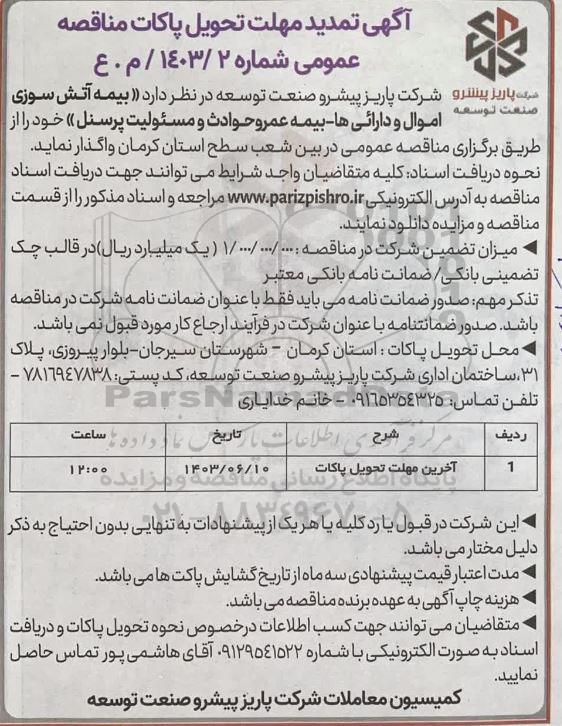 آگهی تمدید مهلت تحویل پاکات مناقصه
عمومی شماره ۲ /۱۴۰۳ / م . ع
شرکت پاریز پیشرو
صنعت توسعه
شرکت پاریز پیشرو صنعت توسعه در نظر دارد « بیمه آتش سوزی
اموال و دارائی ها-بیمه عمر و حوادث و مسئولیت پرسنل » خود را از
طریق برگزاری مناقصه عمومی در بین شعب سطح استان کرمان واگذار نماید.
نحوه دریافت اسناد: کلیه متقاضیان واجد شرایط می توانند جهت دریافت اسناد
مناقصه به آدرس الکترونیکی www.parizpishro.ir مراجعه و اسناد مذکور را از قسمت
مناقصه و مزایده دانلود نمایند.
◄ میزان تضمین شرکت در مناقصه : ۱/۰۰۰/۰۰۰/۰۰۰ ( یک میلیارد ریال) در قالب چک
تضمینی بانکی / ضمانت نامه بانکی معتبر
تذکر مهم: صدور ضمانت نامه می باید فقط با عنوان ضمانت نامه شرکت در مناقصه
باشد. صدور ضمانتنامه با عنوان شرکت در فرآیند ارجاع کار مورد قبول نمی باشد.
◄ محل تحویل پاکات : استان کرمان – شهرستان سیرجان-بلوار پیروزی، پلاک
۳۱، ساختمان اداری شرکت پاریز پیشرو صنعت توسعه، کد پستی: ۷۸۱۶۹۴۷۸۳۸ –
تلفن تماس: ۰۹۱۶۵۳۵۴۳۲۵ - خانم خدایاری
ردیف شرح تاریخ ساعت
1 آخرین مهلت تحویل پاکات ۱۴۰۳/۰۶/۱۰ ۱۲:۰۰
◄ این شرکت در قبول یا رد کلیه یا هر یک از پیشنهادات به تنهایی بدون احتیاج به ذکر
دلیل مختار می باشد.
◄ مدت اعتبار قیمت پیشنهادی سه ماه از تاریخ گشایش پاکت ها می باشد.
◄ هزینه چاپ آگهی به عهده برنده مناقصه می باشد.
◄ متقاضیان می توانند جهت کسب اطلاعات درخصوص نحوه تحویل پاکات و دریافت
اسناد به صورت الکترونیکی با شماره ۰۹۱۲۹۵۴۱۵۲۲ آقای هاشمی پور تماس حاصل
نمایید.
کمیسیون معاملات شرکت پاریز پیشرو صنعت توسعه
ParsNamadData
مرکز فرآوری اطلاعات پارس نماد داده ها
پایگاه اطلاع رسانی مناقصه و مزایده
۰۲۱-۸۸۳۴۹۶۷۰-۵